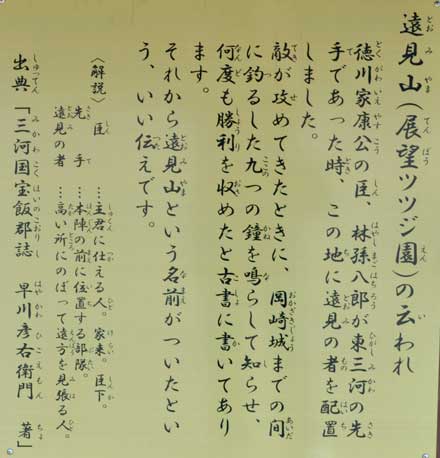 遠見山（展望ツツジ園）の云われ
徳川家康公の臣　林孫八郎が東三河の先
手であった時、この地に遠見の者を配置
しました。
敵が攻めてきたときに、岡崎城までの間
に釣るした九つの鐘を鳴らして知らせ、
何度も勝利を収めたと古書に書いてあり
ます。
それから遠見山という名前がついたとい
う、いい伝えです。
〈解説〉臣　…主君に仕える人。家来。臣下。
先手　…本陣の前に位置する部隊。
遠見の者　…高い所にのぼって遠方を見張る人。
出典「三河国宝飯郡誌　早川彦右衛門　著」